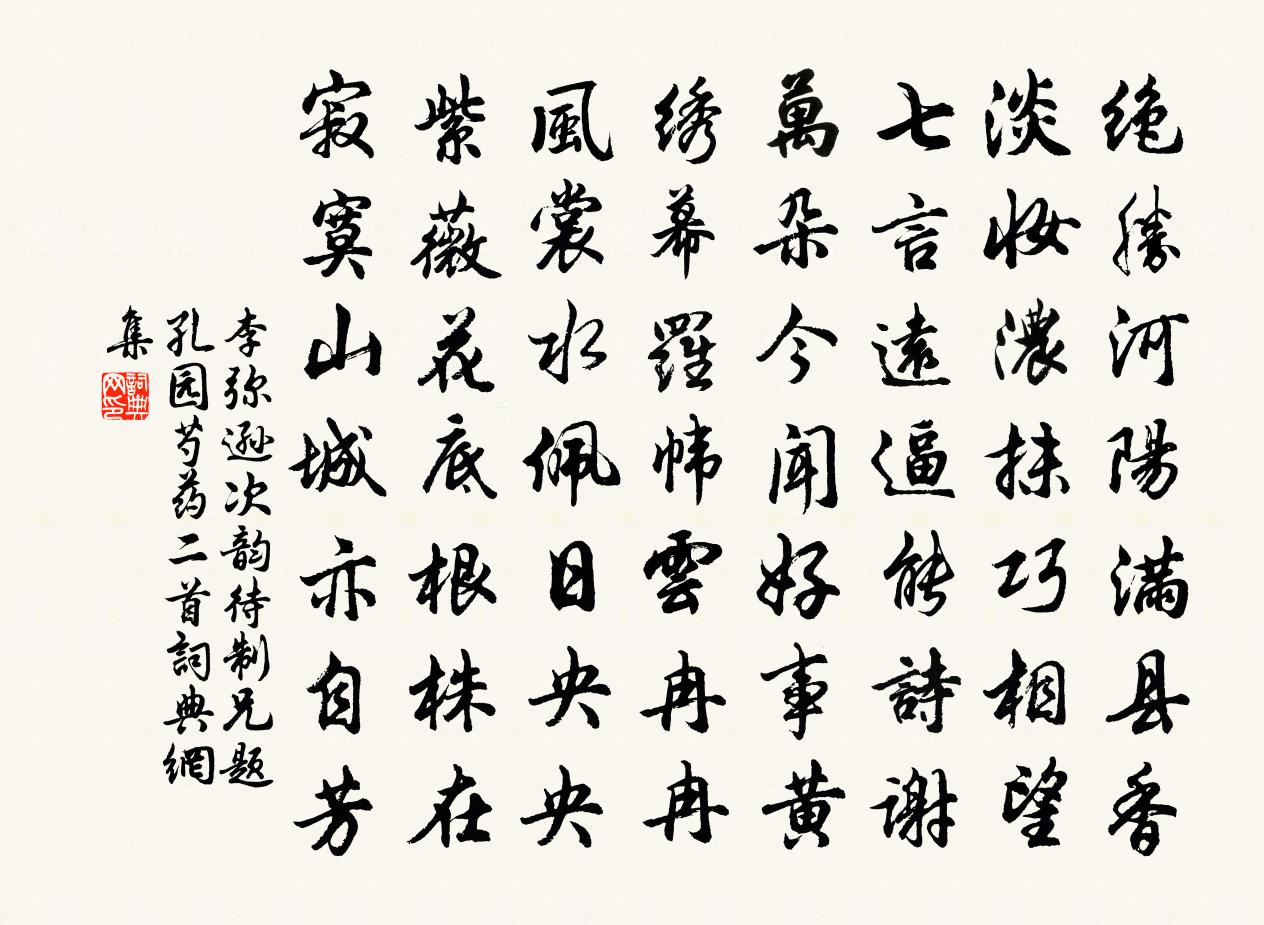 绝勝河陽满县香
淡妆濃抹巧相望
七言遠逼能詩谢
萬朵今闻好事黄
绣幕羅帏雲冉冉
風裳水佩日央央
紫薇花底根株在
寂寞山城亦自芳
李弥逊次韵待制兄题
孔园芍药二首詞典網
集
詞典网印